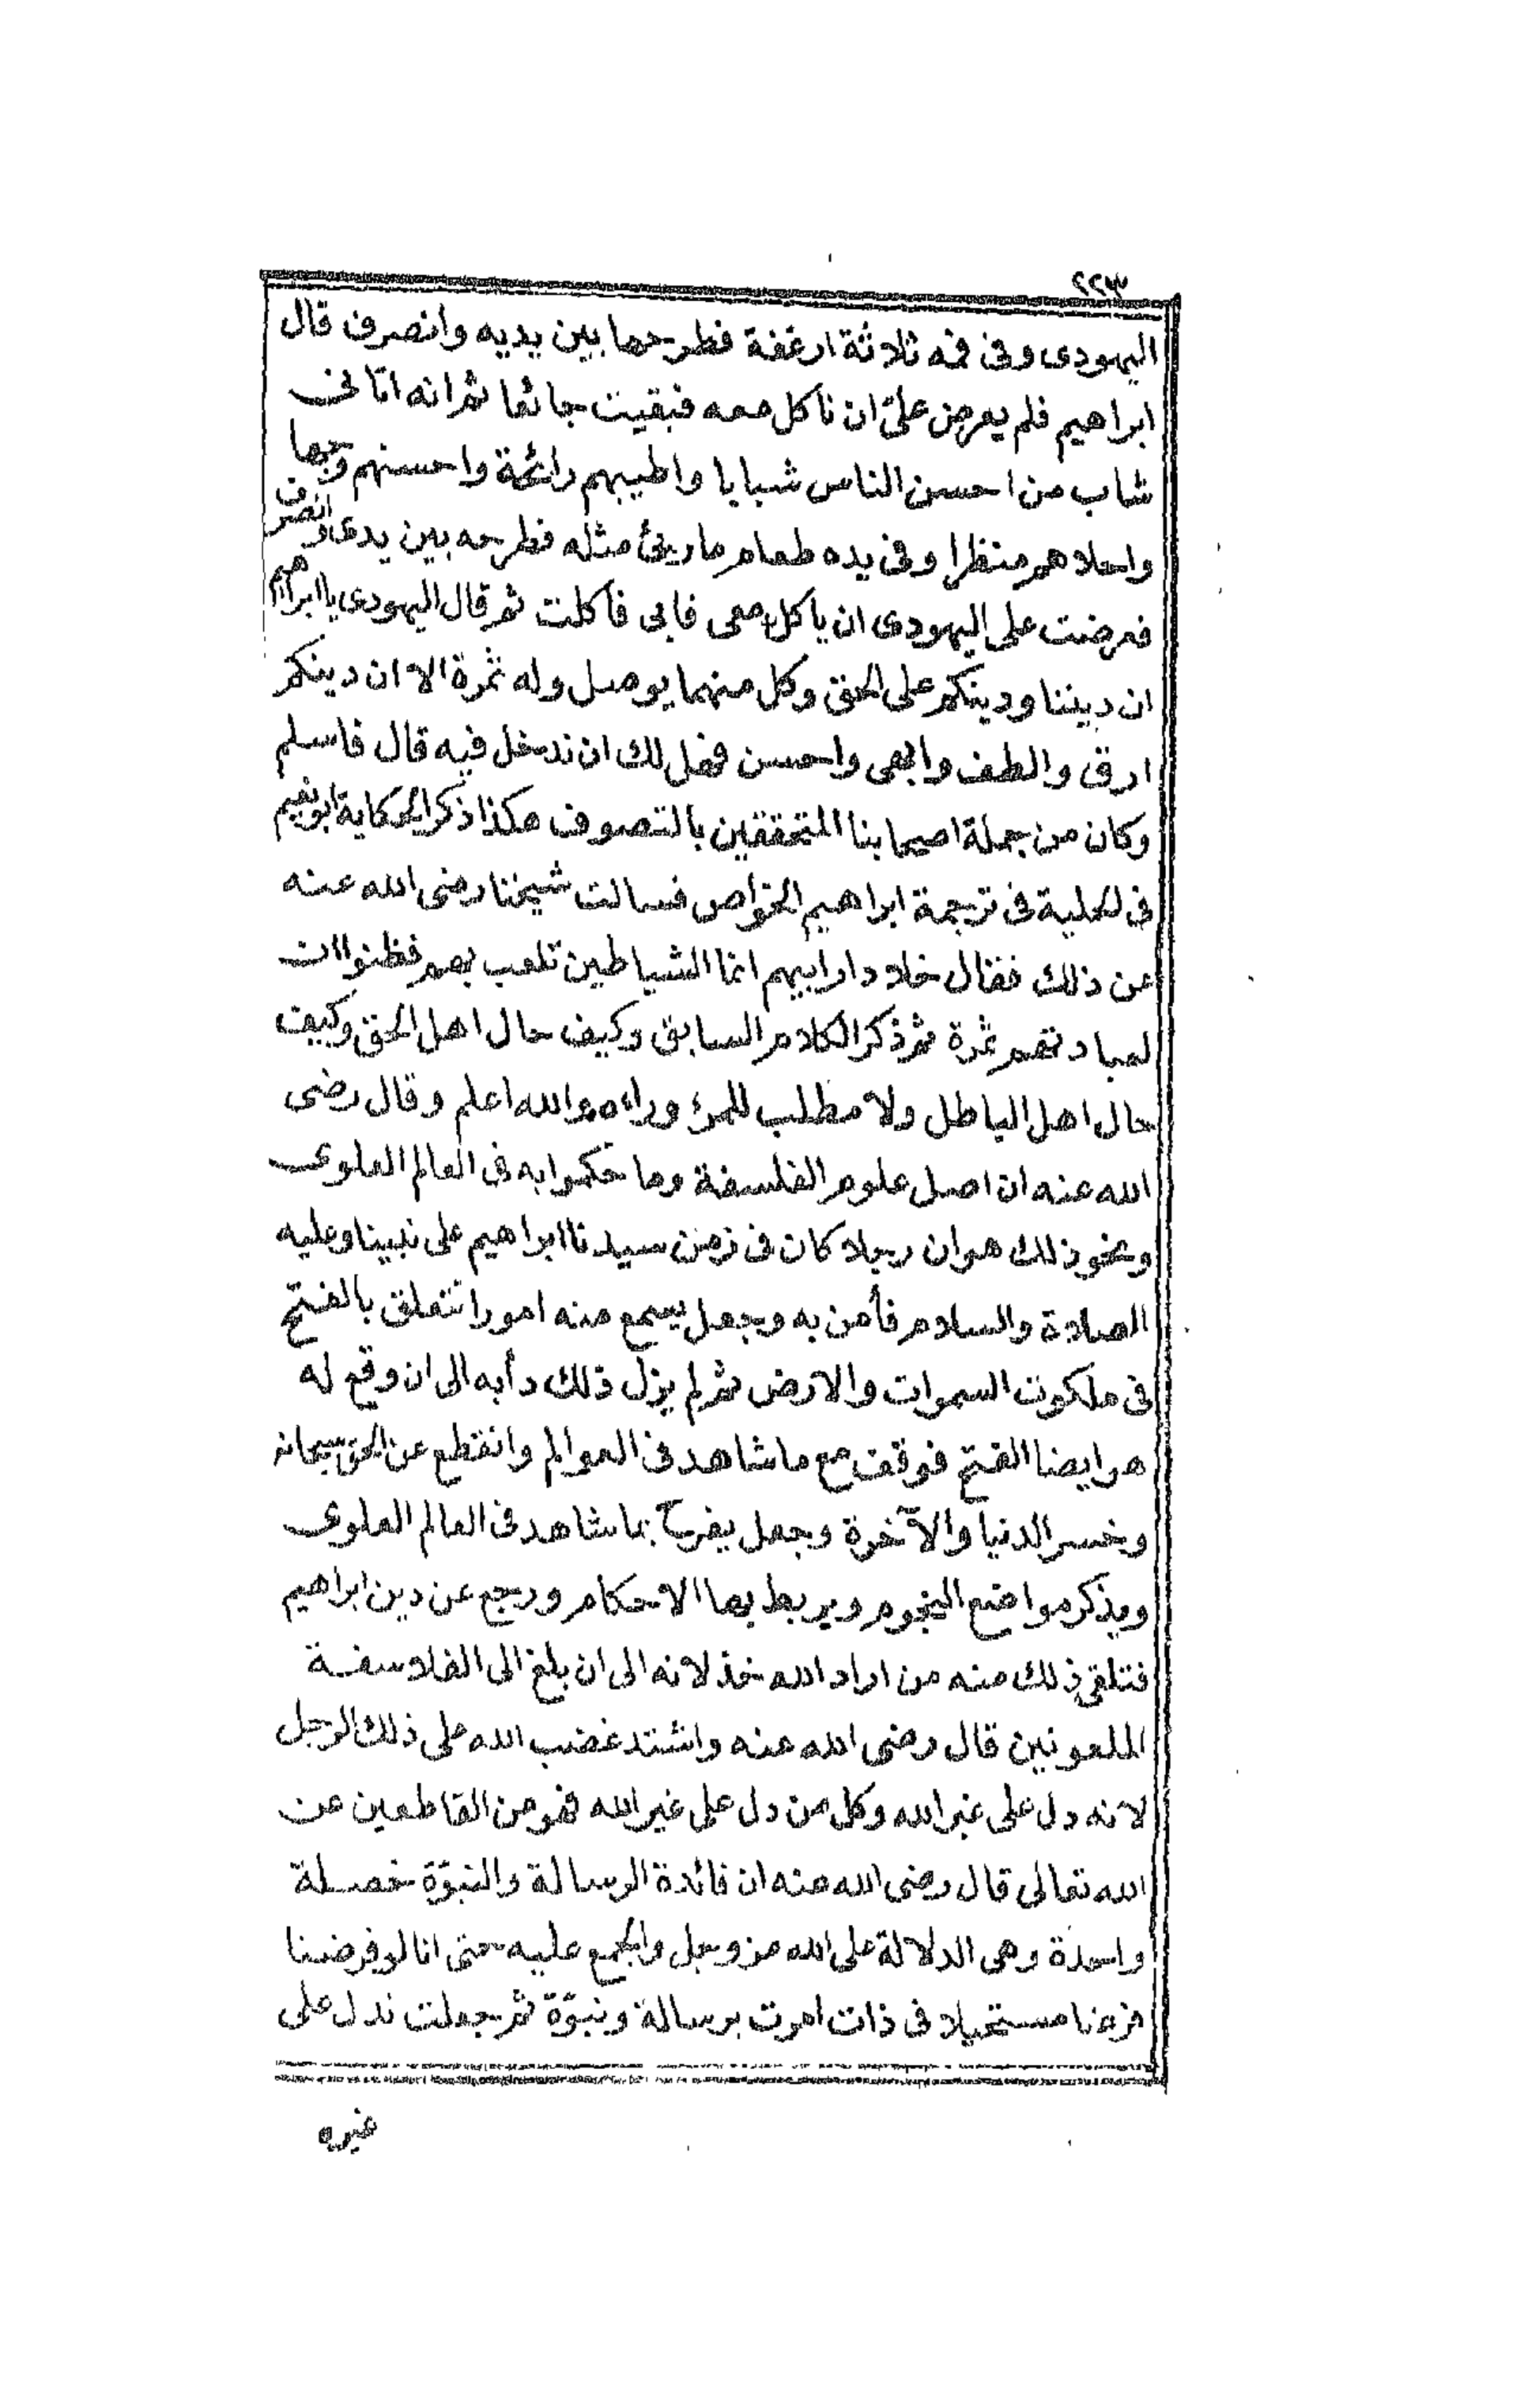 ٢٢٣
اليهودى وفى فمه ثلاثة ارغفة فطرحها بين يديه وانصرف قال
ابراهيم فلم يعرض علىّ ان ناكل معه فبقيت جائعا ثم انه اتانى
شاب من احسن الناس شبابا واطيبهم رائحة واحسنهم وجها
واحلاهم منظرا وفى يده طعام ما ريئ مثله فطرحه بين يدى وانصرف
فعرضت على اليهودى ان ياكل معى فابى فاكلت ثم قال اليهودى يا ابراهيم
ان ديننا ودينكم على الحق وكل منهما يوصل وله ثمرة الا ان دينكم
ارق والطف وابهى واحسن فهل لك ان ندخل فيه قال فاسلم
وكان من جملة اصحابنا المتحققين بالتصوف هكذا ذكر الحكاية ابو نعيم
فى الحلية فى ترجمة ابراهيم الخواص فسالت شيخنا رضى الله عنه
عن ذلك فقال خلا دار ابيهم انما الشياطين تلعب بهم فظنوا ان
لعبادتهم ثمرة ثم ذكر الكلام السابق وكيف حال اهل الحق وكيف
حال اهل الباطل ولا مطلب للمرء وراءه والله اعلم وقال رضى
الله عنه ان اصل علوم الفلسفة وما حكموا به فى العالم العلوى
ونحو ذلك هو ان رجلا كان فى زمن سيدنا ابراهيم على نبينا وعليه
الصلاة والسلام فأمن به وجعل يسمع منه امورا تتعلق بالفتح
فى ملكوت السموات والارض ثم لم يزل ذلك دأبه الى ان وقع له
هو ايضا الفتح فوقف مع ما شاهد فى العوالم وانقطع عن الحق سبحانه
وخسر الدنيا والآخرة وجعل يفرح بما شاهد فى العالم العلوى
ويذكر مواضع النجوم ويربط بها الاحكام ورجع عن دين ابراهيم
فتلقى ذلك منه من اراد الله خذلانه الى ان بلغ الى الفلاسفة
الملعونين قال رضى الله عنه واشتد غضب الله على ذلك الرجل
لانه دل على غير الله وكل من دل على غير الله فهو من القاطعين عن
الله تعالى قال رضى الله عنه ان فائدة الرسالة والنبوّة خصلة
واحدة وهى الدلالة على الله عز وجل والجمع عليه حتى انا لو فرضنا
فرضا مستحيلا فى ذات امرت برسالة ونبوّة ثم جعلت ندل على
غيره